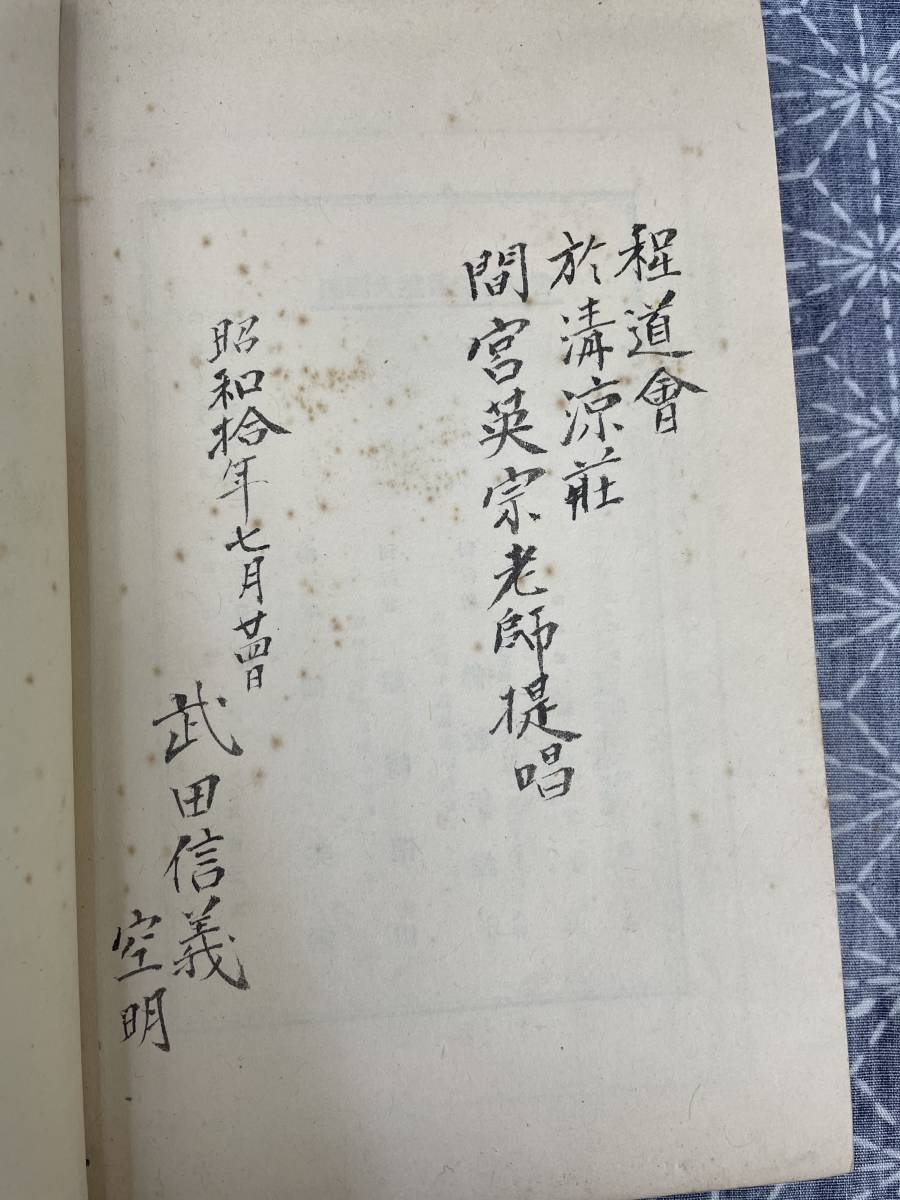 程道會
於清涼莊
間宮英宗老師提唱
昭和拾年七月廿四日
武田信義
空明